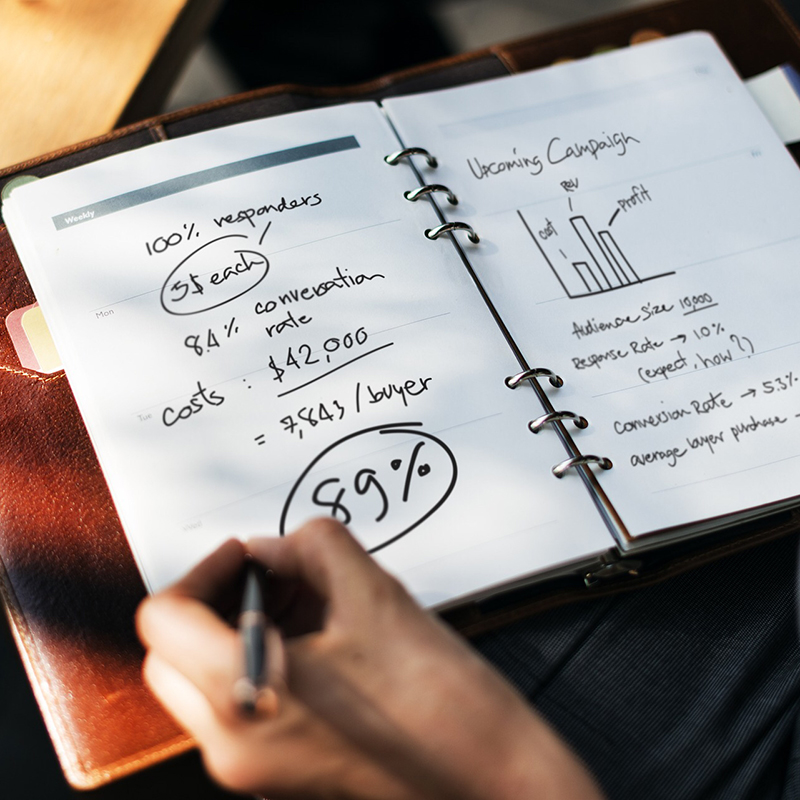 Weekly
100% responders
5$ each
Mon
8.4% conversation
rate
Tue
costs : $42,000
= 7,843 / buyer
89%
Upcoming Campaign
cost
Rev
profit
Audience size 10,000
Response Rate → 10%
(expect, how?)
Conversion Rate → 5.3%
average buyer purchase →